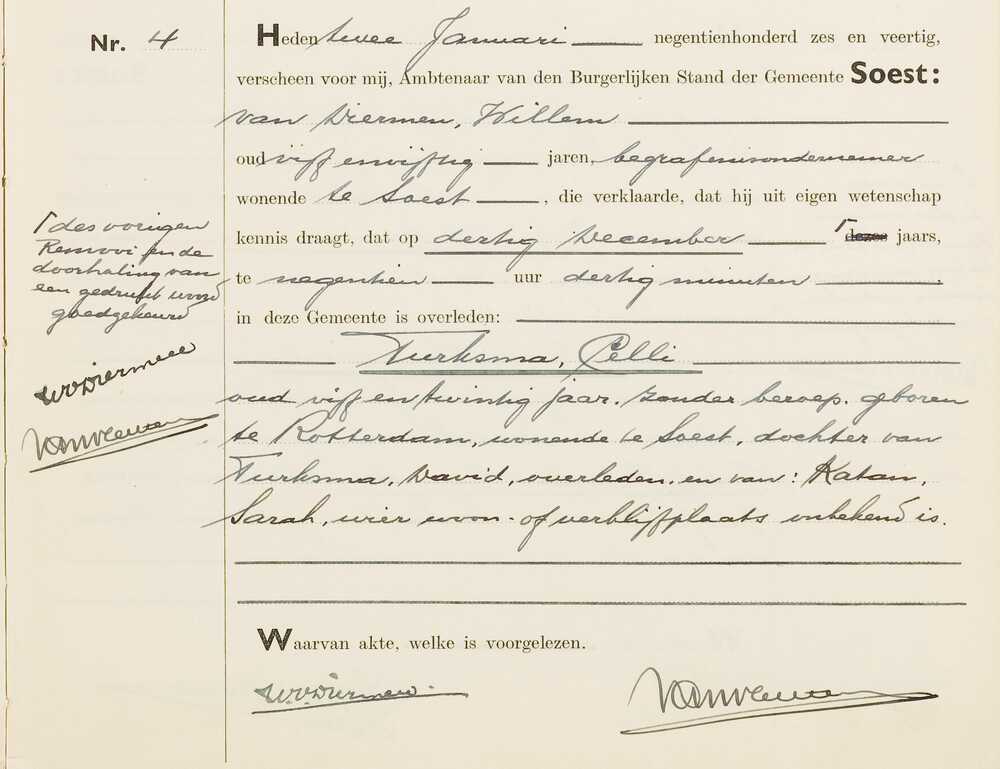 Nr. 4
Heden twee Januari negentienhonderd zes en veertig,
verscheen voor mij, Ambtenaar van den Burgerlijken Stand der Gemeente Soest:
van Diermen, Willem
oud vijf en vijftig jaren, begrafenisondernemer
wonende te Soest, die verklaarde, dat hij uit eigen wetenschap
kennis draagt, dat op dertig December Γ dezes jaars,
te negentien uur dertig minuten.
in deze Gemeente is overleden:
Turksma, Celli
oud vijf en twintig jaar. zonder beroep. geboren
te Rotterdam, wonende te Soest, dochter van
Turksma, David, overleden, en van: Katan,
Sarah, wier woon- of verblijfplaats onbekend is.
Waarvan akte, welke is voorgelezen.
W.v.Diermen
Γ des vorigen
en de
doorhaling van
een gedrukt woord
goedgekeurd
W.v.Diermen